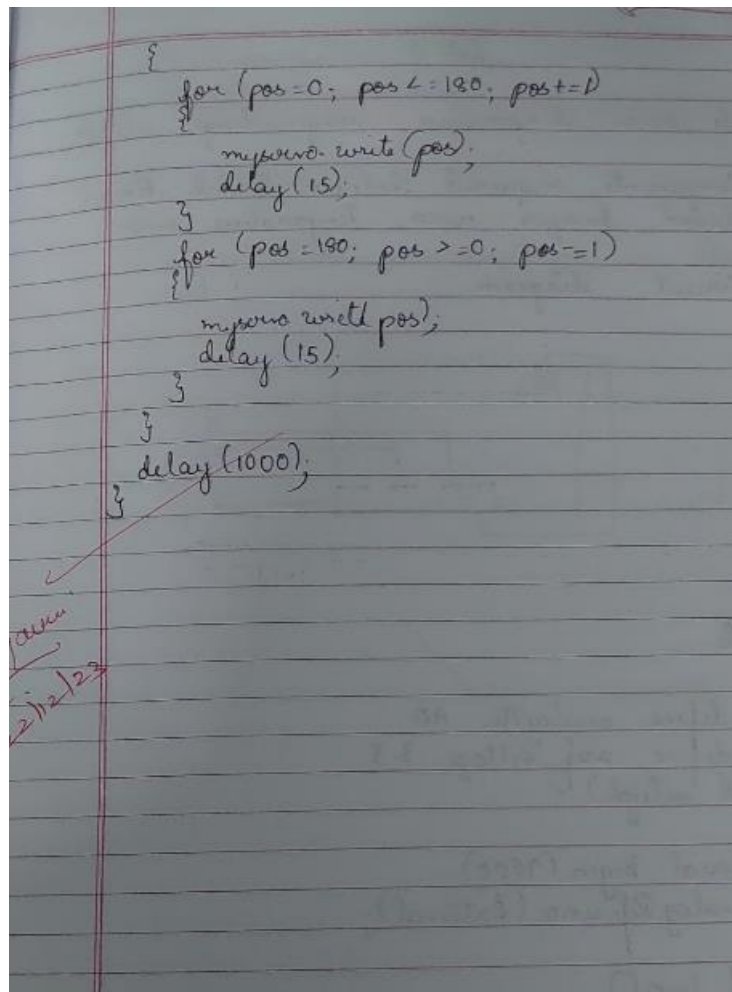 {
for (pos=0; pos<=180; pos+=1)
{
myservo.write(pos);
delay(15);
}
for (pos=180; pos>=0; pos-=1)
{
myservo write(pos);
delay(15);
}
}
delay(1000);
}
2/12/23